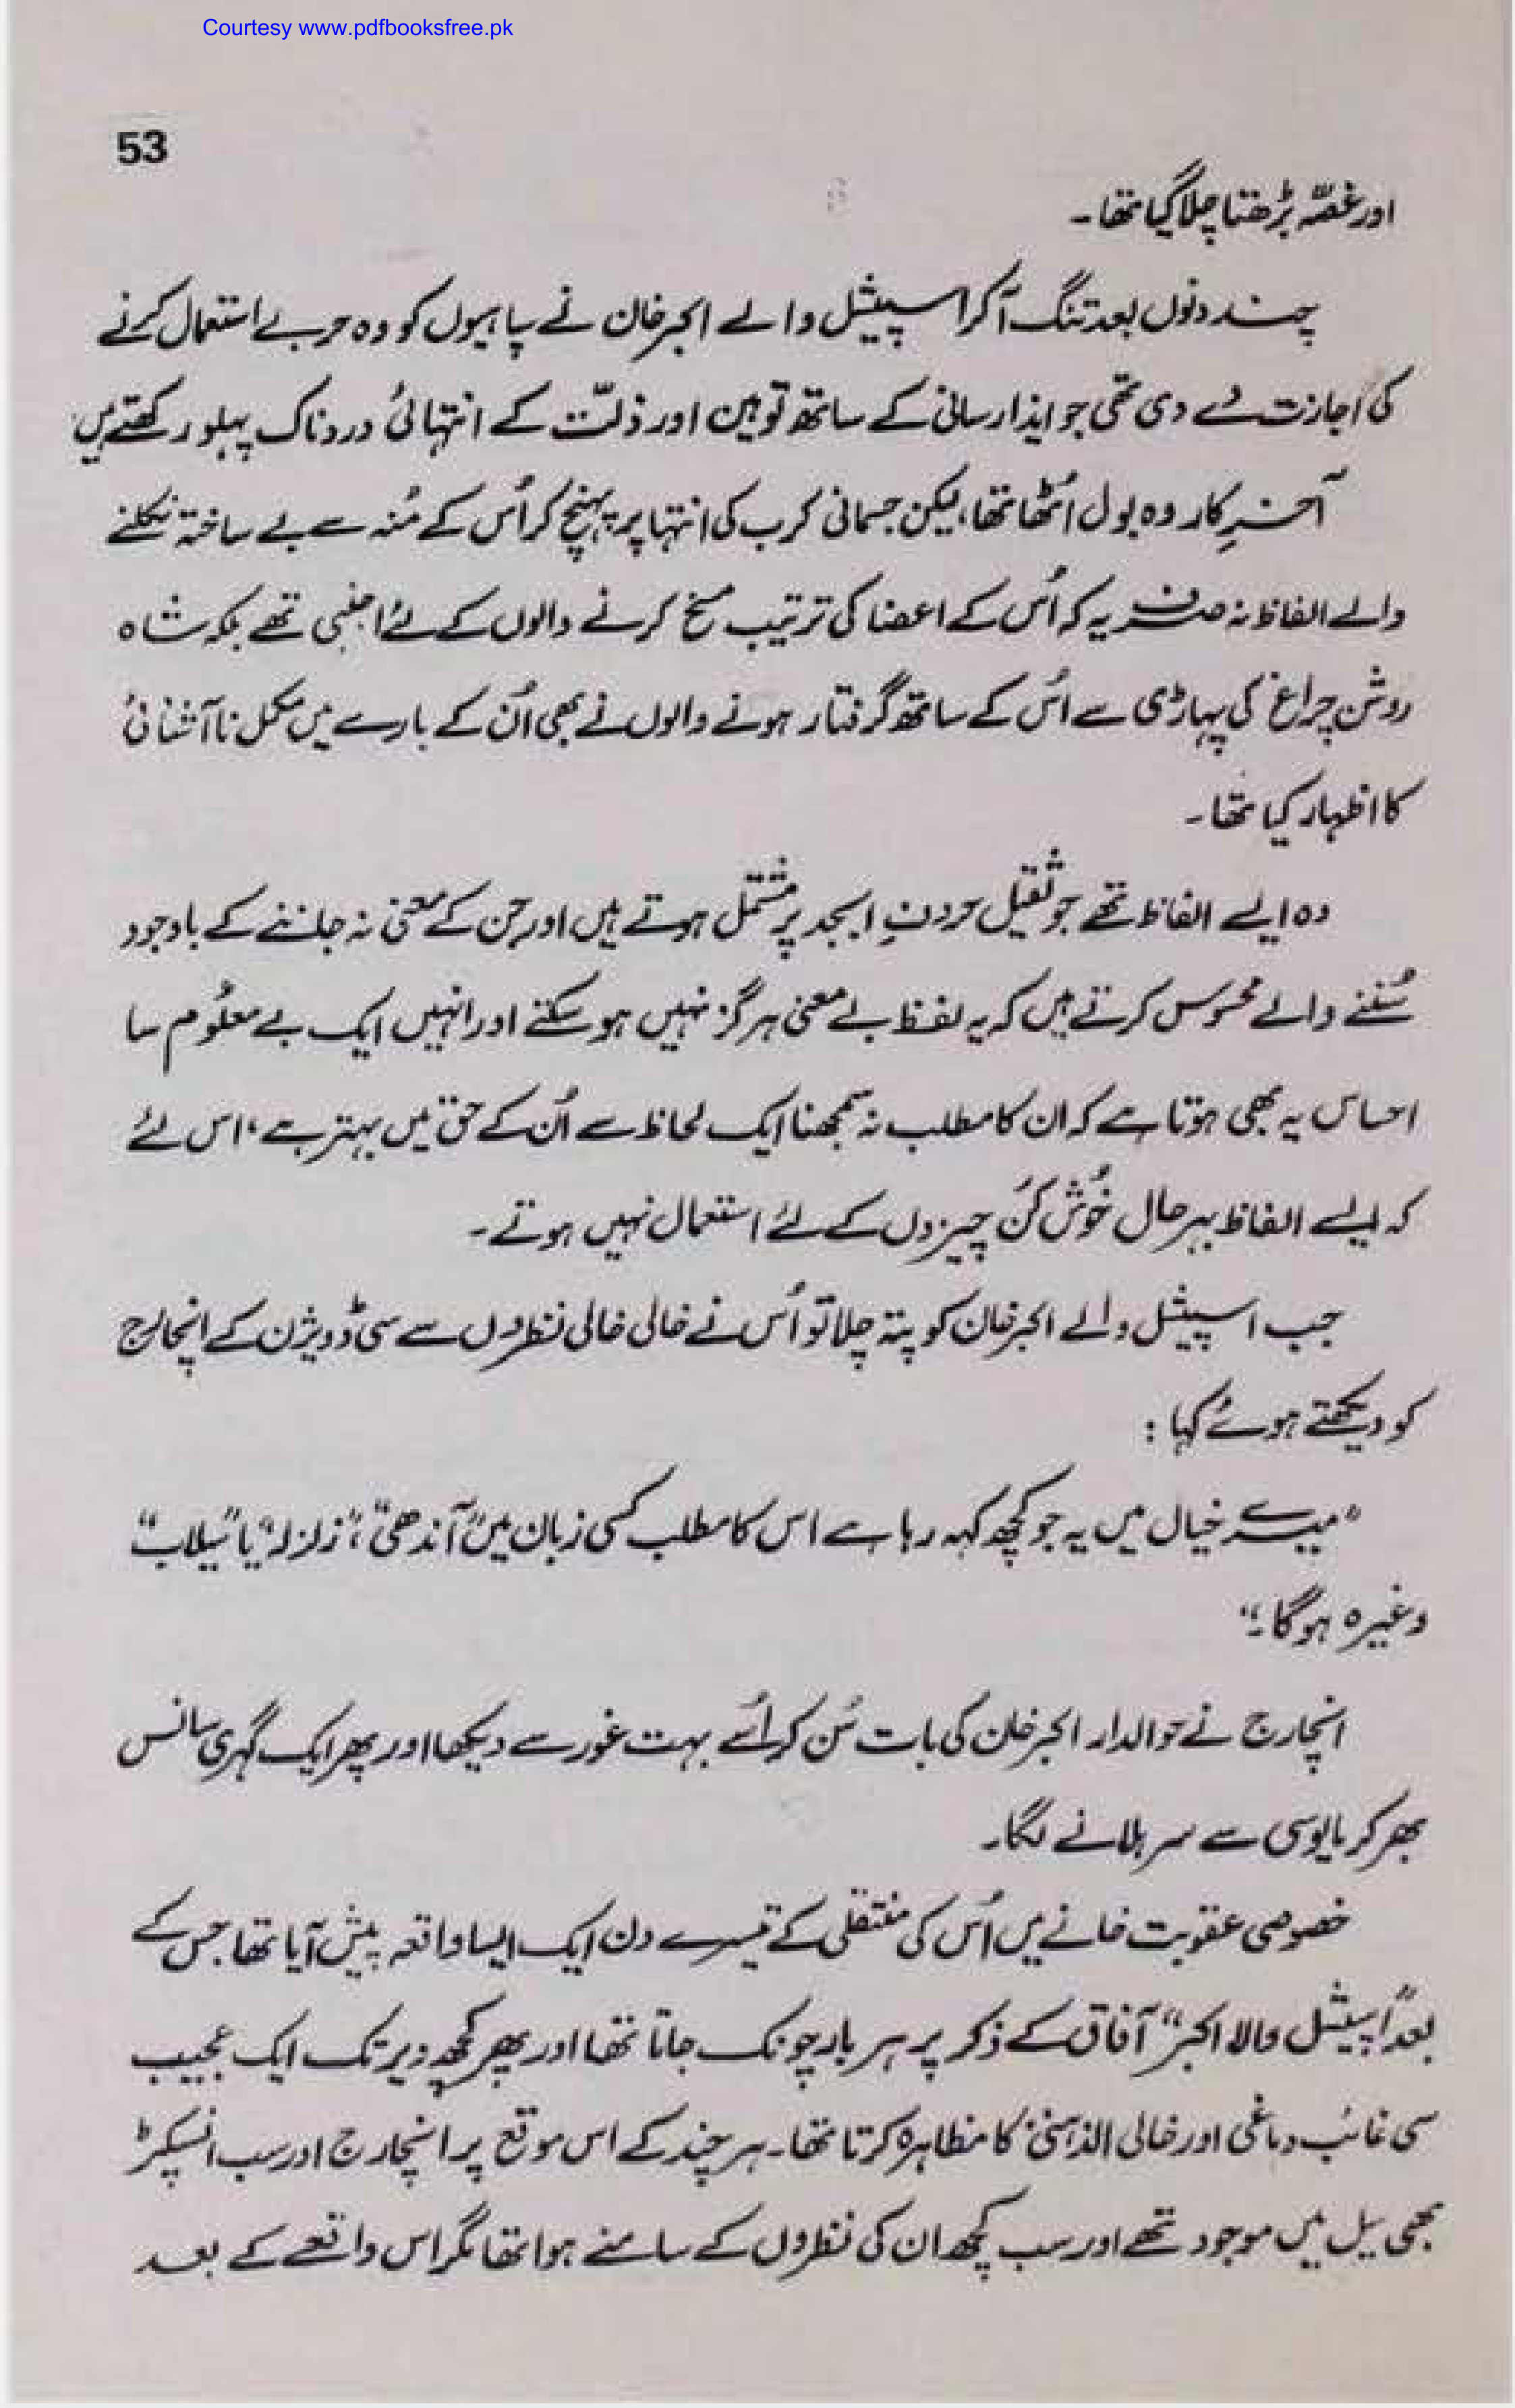 Courtesy www.pdfbooksfree.pk
53
اور غصّہ بڑھتا چلا گیا تھا۔
چند دنوں بعد تنگ آ کر اسپیشل والے اکبر خان نے سپاہیوں کو وہ حربے استعمال کرنے
کی اجازت دے دی تھی جو ایذا رسانی کے ساتھ توہین اور ذلّت کے انتہائی دردناک پہلو رکھتے ہیں
آخرِ کار وہ بول اُٹھا تھا، لیکن جسمانی کرب کی انتہا پر پہنچ کر اُس کے مُنہ سے بے ساختہ نکلنے
والے الفاظ نہ صرف یہ کہ اُس کے اعضا کی ترتیب مسخ کرنے والوں کے لئے اجنبی تھے بلکہ شاہ
روشن چراغ کی پہاڑی سے اُس کے ساتھ گرفتار ہونے والوں نے بھی اُن کے بارے میں مکمل ناآشنائی
کا اظہار کیا تھا۔
وہ ایسے الفاظ تھے جو ثقیل حروفِ ابجد پر مشتمل ہوتے ہیں اور جن کے معنی نہ جاننے کے باوجود
سُننے والے محسوس کرتے ہیں کہ یہ لفظ بے معنی ہرگز نہیں ہو سکتے اور انہیں ایک بے معلُوم سا
احساس یہ بھی ہوتا ہے کہ ان کا مطلب نہ سمجھنا ایک لحاظ سے اُن کے حق میں بہتر ہے، اس لئے
کہ ایسے الفاظ بہرحال خُوش کُن چیزوں کے لئے استعمال نہیں ہوتے۔
جب اسپیشل والے اکبر خان کو پتہ چلا تو اُس نے خالی خالی نظروں سے سی ڈویژن کے انچارج
کو دیکھتے ہوئے کہا :
"میرے خیال میں یہ جو کچھ کہہ رہا ہے اس کا مطلب کسی زبان میں "آندھی"، "زلزلہ" یا "سیلاب"
وغیرہ ہوگا۔"
انچارج نے حوالدار اکبر خان کی بات سُن کر اُسے بہت غور سے دیکھا اور پھر ایک گہری سانس
بھر کر مایوسی سے سر ہلانے لگا۔
خصوصی عقوبت خانے میں اُس کی منتقلی کے تیسرے دن ایک ایسا واقعہ پیش آیا تھا جس کے
بعد "اسپیشل والا اکبر" آفاق کے ذکر پر ہر بار چونک جاتا تھا اور پھر کچھ دیر تک ایک عجیب
سی غائب دماغی اور خالی الذہنی کا مظاہرہ کرتا تھا۔ ہر چند کے اس موقع پر انچارج اور سب انسپکٹر
بھی سیل میں موجود تھے اور سب کچھ ان کی نظروں کے سامنے ہوا تھا مگر اس واقعے کے بعد